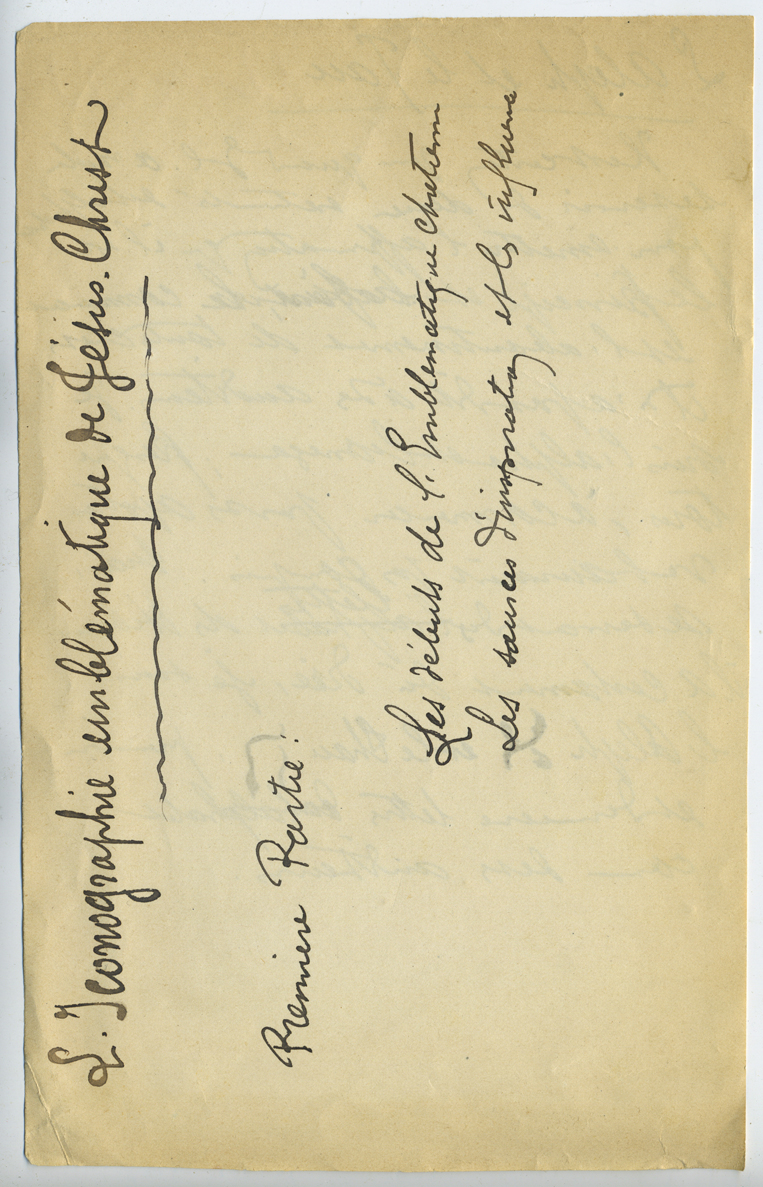 L. Iconographie emblématique de Jésus-Christ
Première Partie :
Les débuts de l. Emblematique chretienne
Les sources d'inspiration et les influence